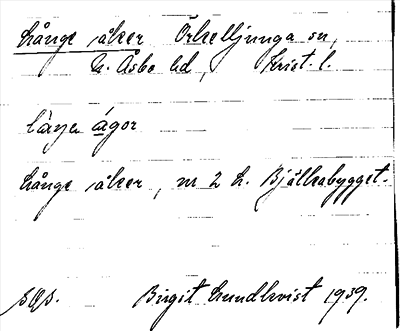 Långe åker Örkelljunga sn,
N. Åsbo hd, Krist. l.
ågor
Långe åker, nr 2 h. Bjälkabygget.
sgs. Birgit Lundkvist 1939.